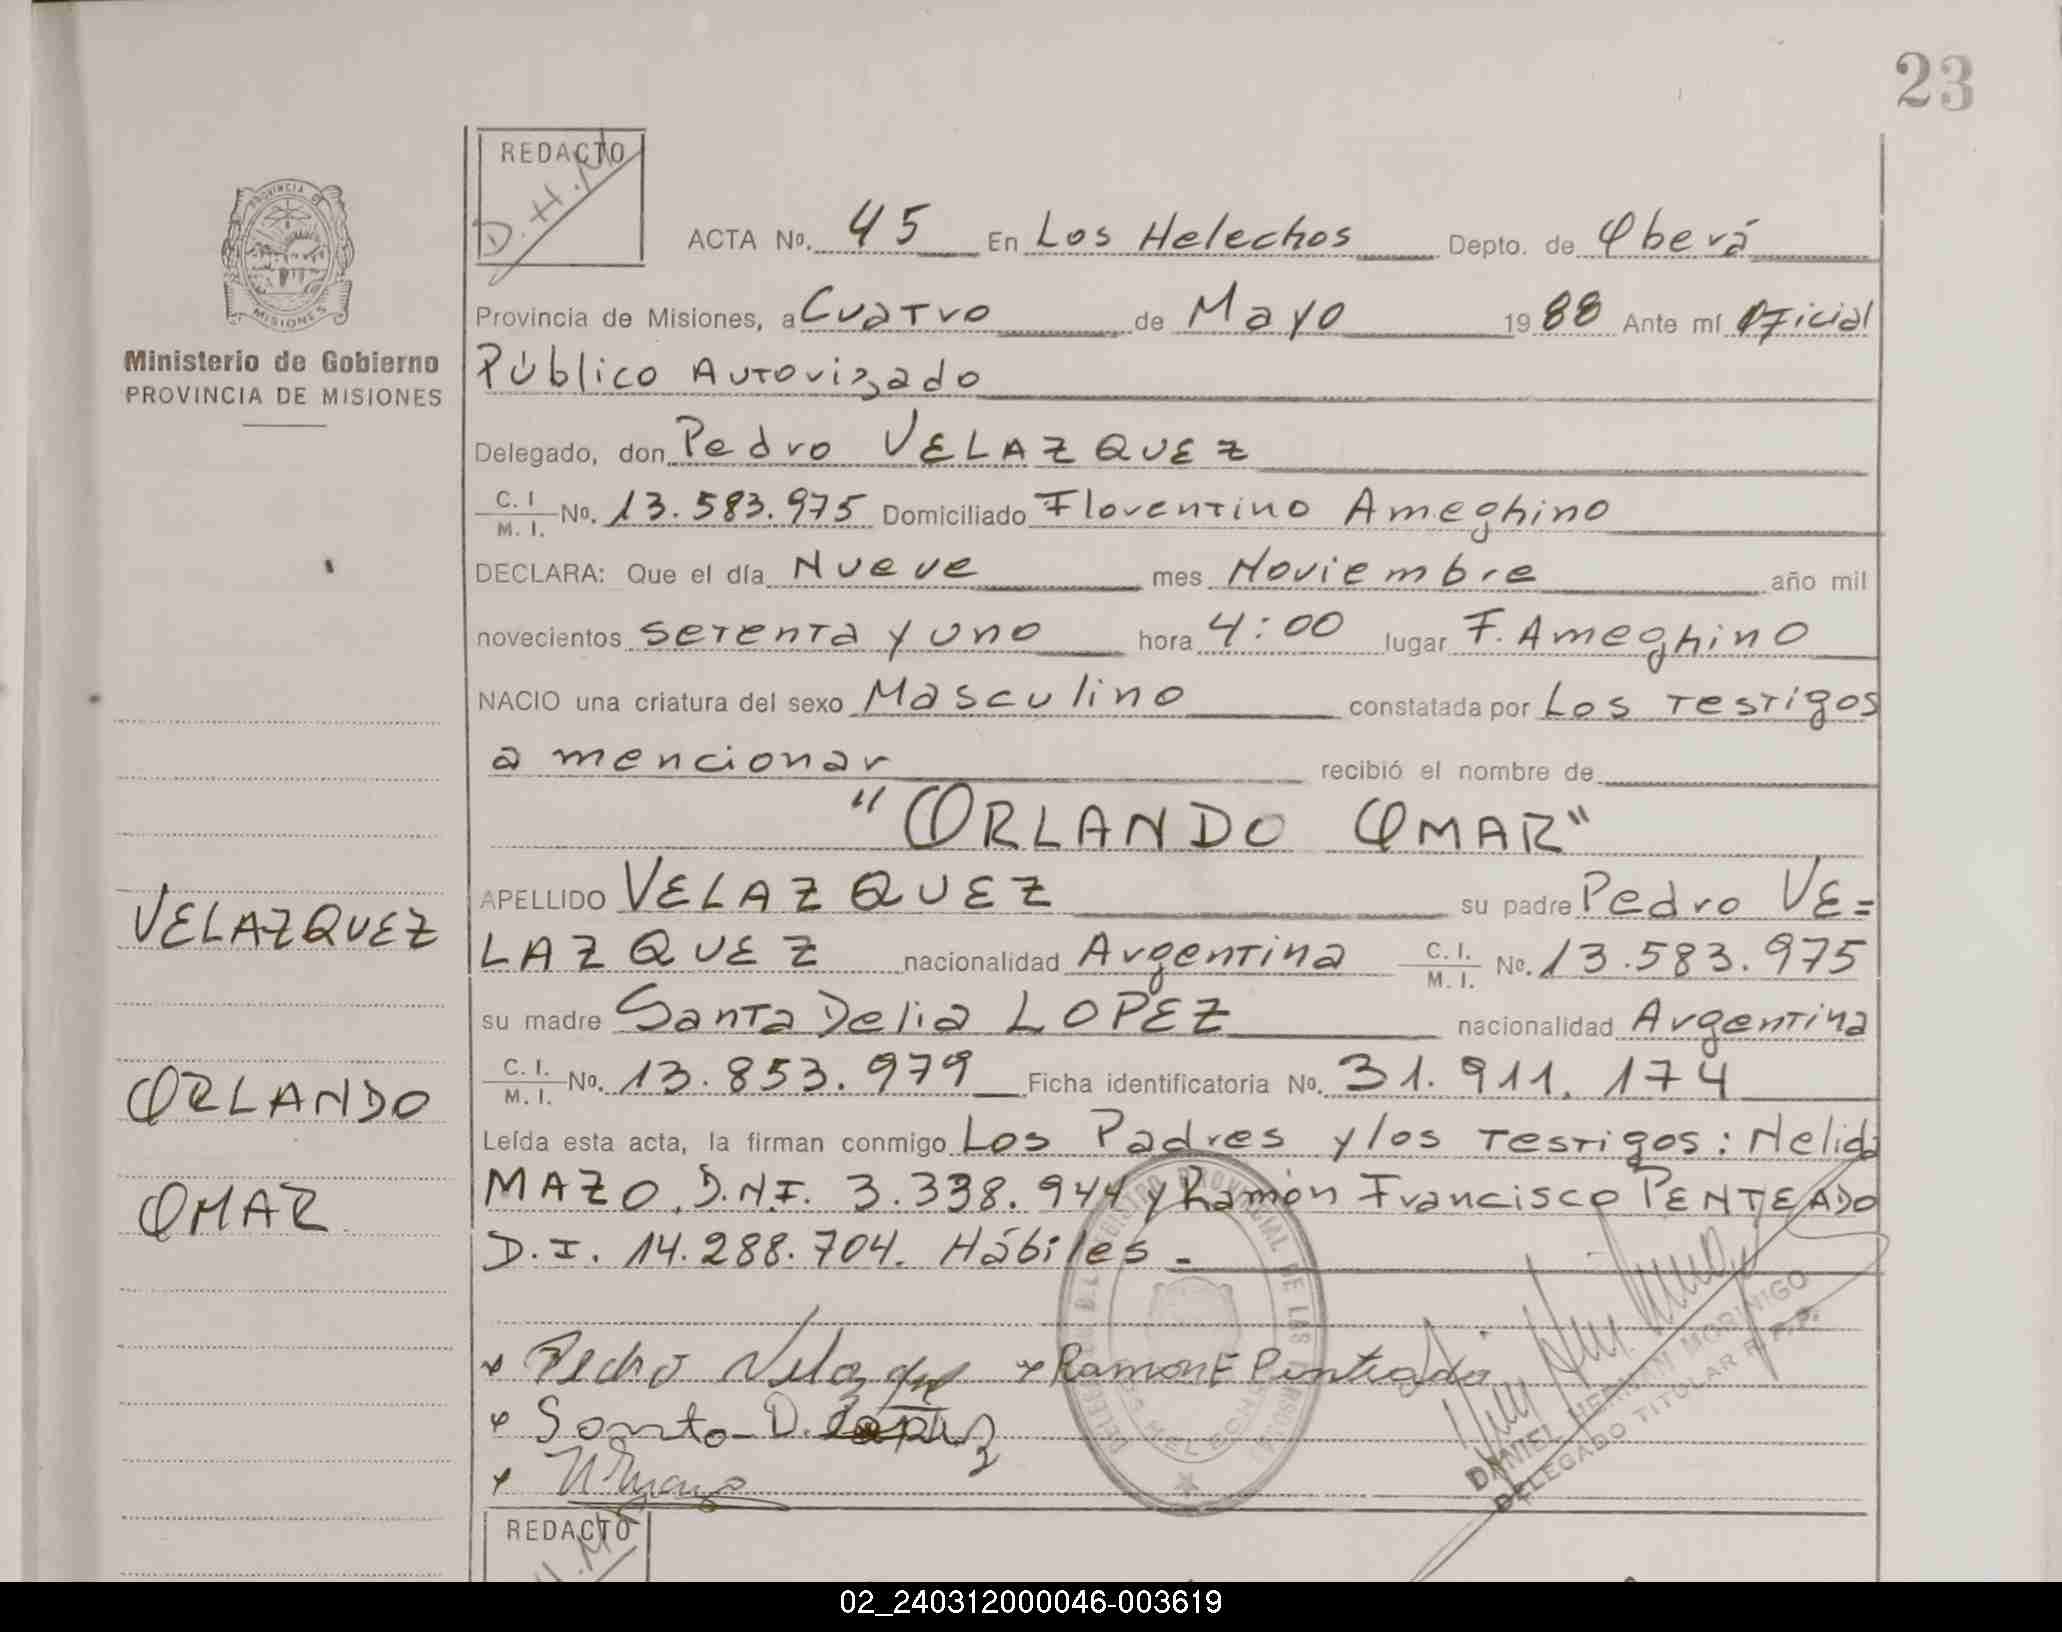 23
REDACTO
D.H.M
PROVINCIA D
MISIONES
Ministerio de Gobierno
PROVINCIA DE MISIONES
ACTA No. 45 En Los Helechos Depto. de Oberá
Provincia de Misiones, a Cuatro de Mayo 1988 Ante mí Oficial
Público Autorizado
Delegado, don Pedro VELAZQUEZ
C. I. / M. I. No. 13.583.975 Domiciliado Florentino Ameghino
DECLARA: Que el día Nueve mes Noviembre año mil
novecientos setenta y uno hora 4:00 lugar F. Ameghino
NACIO una criatura del sexo Masculino constatada por Los testigos
a mencionar recibió el nombre de
"ORLANDO OMAR"
APELLIDO VELAZQUEZ su padre Pedro VE=
LAZQUEZ nacionalidad Argentina C. I. / M. I. No. 13.583.975
su madre Santa Delia LOPEZ nacionalidad Argentina
C. I. / M. I. No. 13.853.979 Ficha identificatoria No. 31.911.174
Leída esta acta, la firman conmigo Los Padres y los testigos: Nelida
MAZO. D.N.I. 3.338.944 y Ramón Francisco PENTEADO
D.I. 14.288.704. Hábiles -
VELAZQUEZ
ORLANDO
OMAR
Pedro Velazquez Ramon F Penteado
Santa D. Lopez
N Mazo
PROVINCIAL DE LAS PERSONAS
LOS HELECHOS
DANIEL HERNAN MORINIGO
DELEGADO TITULAR R.P.P.
REDACTO
H.M
02_240312000046-003619